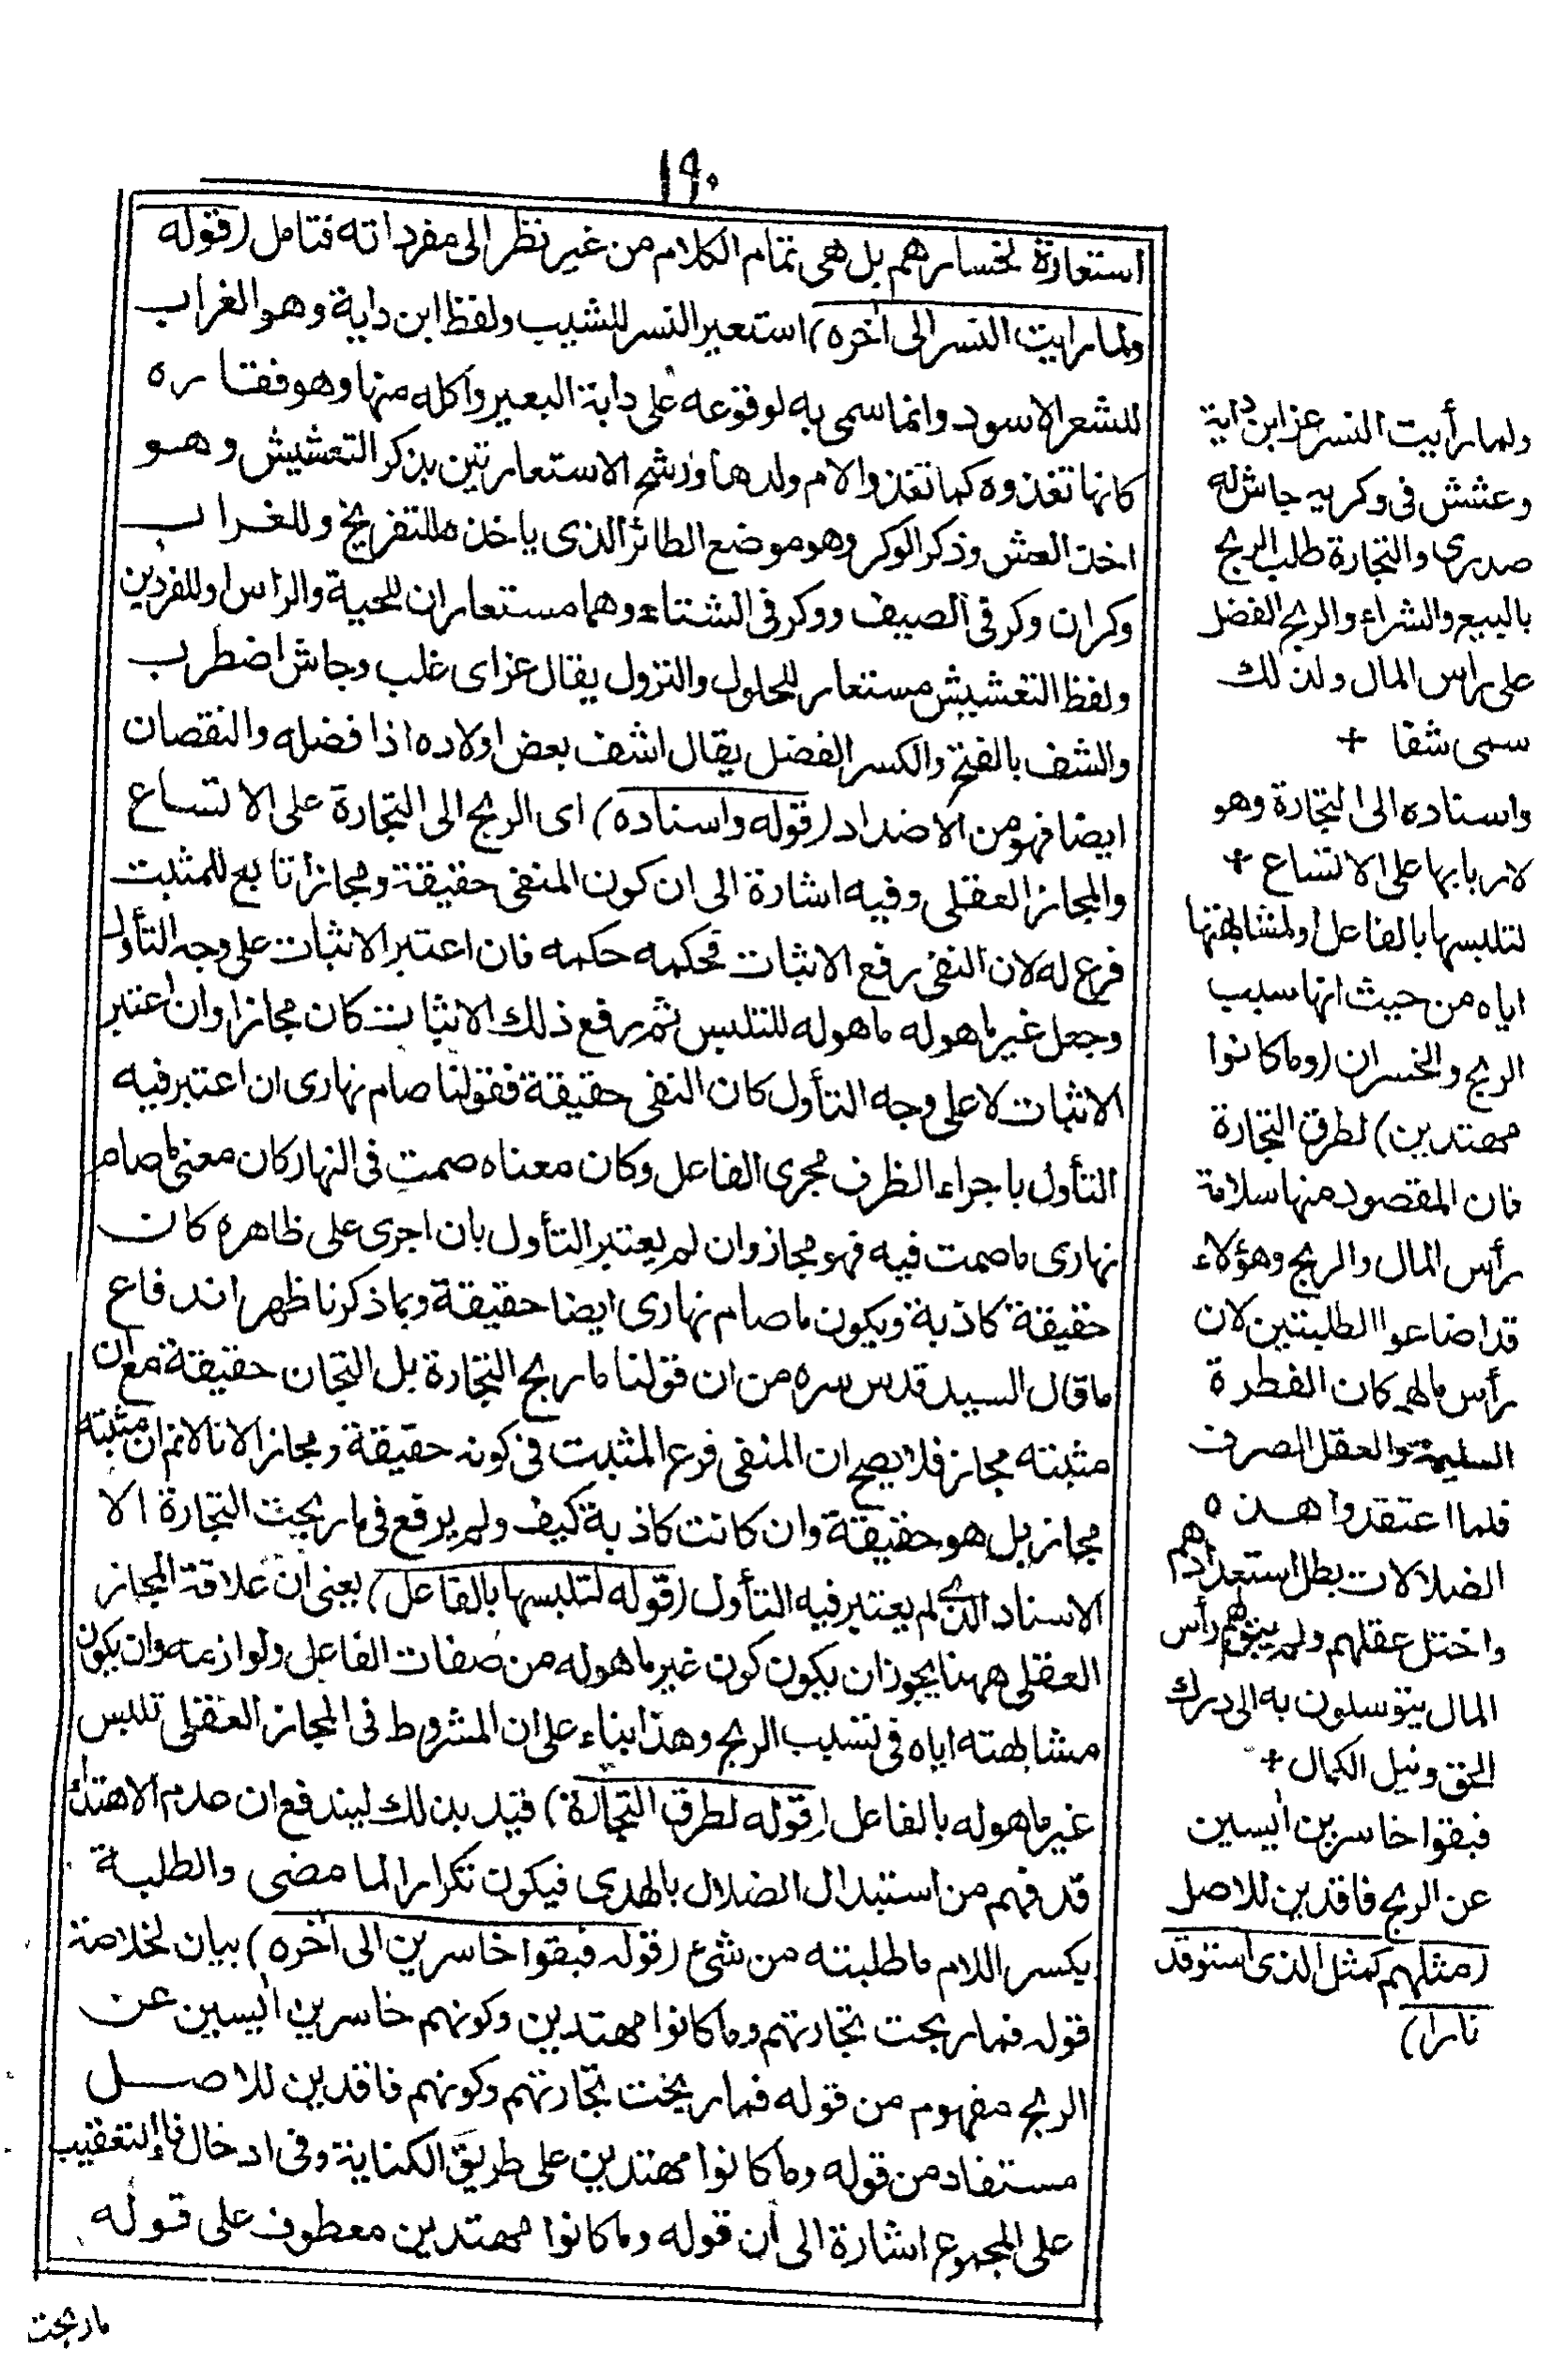 ١٩٠
استعارة لخسارهم بل هى تمام الكلام من غير نظر الى مفرداته فتامل (قوله
ولما رايت النسر الى اخره) استعير النسر للشيب ولفظ ابن داية وهو الغراب
للشعر الاسود وانما سمى به لوقوعه على داية البعير واكله منها وهو فقاره
كانها تغذوه كما تغذو الام ولدها ورشح الاستعارتين بذكر التعشيش وهو
اخذ العش وذكر الوكر وهو موضع الطائر الذى ياخذه للتفريخ وللغراب
وكران وكر فى الصيف ووكر فى الشتاء وهما مستعاران للحية والراس او للفودين
ولفظ التعشيش مستعار للحلول والنزول يقال عزاى غلب وجاش اضطرب
والشف بالفتح والكسر الفضل يقال اشف بعض اولاده اذا فضله والنقصان
ايضا فهو من الاضداد (قوله واسناده) اى الربح الى التجارة على الاتساع
والمجاز العقلى وفيه اشارة الى ان كون المنفى حقيقة ومجازا تابع للمثبت
فرع له لان النفى رفع الاثبات فحكمه حكمه فان اعتبر الاثبات على وجه التأول
وجعل غير ما هو له ما هو له للتلبس ثم رفع ذلك الاثبات كان مجازا وان اعتبر
الاثبات لا على وجه التأول كان النفى حقيقة فقولنا صام نهارى ان اعتبر فيه
التأول باجراء الظرف مجرى الفاعل وكان معناه صمت فى النهار كان معنى ما صام
نهارى ما صمت فيه فهو مجاز وان لم يعتبر التأول بان اجرى على ظاهره كان
حقيقة كاذبة ويكون ما صام نهارى ايضا حقيقة وبما ذكرنا ظهر اندفاع
ما قال السيد قدس سره من ان قولنا ما ربح التجارة بل التجان حقيقة مع ان
مثبته مجاز فلا يصح ان المنفى فرع المثبت فى كونه حقيقة ومجازا لانا لا نم ان مثبته
مجاز بل هو حقيقة وان كانت كاذبة كيف ولم يرفع فى ما ربحت التجارة الا
الاسناد الذى لم يعتبر فيه التأول (قوله لتلبسها بالفاعل) يعنى ان علاقة المجاز
العقلى ههنا يجوز ان يكون كون غير ما هو له من صفات الفاعل ولوازمه وان يكون
مشابهته اياه فى تسبب الربح وهذا بناء على ان المشروط فى المجاز العقلى تلبس
غير ما هو له بالفاعل (قوله لطرق التجارة) قيد بذلك ليندفع ان عدم الاهتداء
قد فهم من استبدال الضلال بالهدى فيكون تكرارا لما مضى والطلبة
بكسر اللام ما طلبته من شئ (قوله فبقوا خاسرين الى اخره) بيان لخلاصة
قوله فما ربحت تجارتهم وما كانوا مهتدين وكونهم خاسرين ائيسين عن
الربح مفهوم من قوله فما ربحت تجارتهم وكونهم فاقدين للاصل
مستفاد من قوله وما كانوا مهتدين على طريق الكناية وفى ادخال فاء التعقيب
على المجموع اشارة الى ان قوله وما كانوا مهتدين معطوف على قوله
ما ربحت
ولما رأيت النسر عز ابن داية
وعشش فى وكريه جاش له
صدرى والتجارة طلب الربح
بالبيع والشراء والربح الفضل
على راس المال ولذلك
سمى شفا +
واسناده الى التجارة وهو
لاربابها على الاتساع +
لتلبسها بالفاعل او لمشابهتها
اياه من حيث انها سبب
الربح والخسران (وما كانوا
مهتدين) لطرق التجارة
فان المقصود منها سلامة
رأس المال والربح وهؤلاء
قد اضاعوا الطلبتين لان
رأس مالهم كان الفطرة
السليمة والعقل الصرف
فلما اعتقدوا هذه
الضلالات بطل استعدادهم
واختل عقلهم ولم يبق لهم رأس
المال يتوسلون به الى درك
الحق ونيل الكمال +
فبقوا خاسرين ائيسين
عن الربح فاقدين للاصل
(مثلهم كمثل الذى استوقد
نارا)